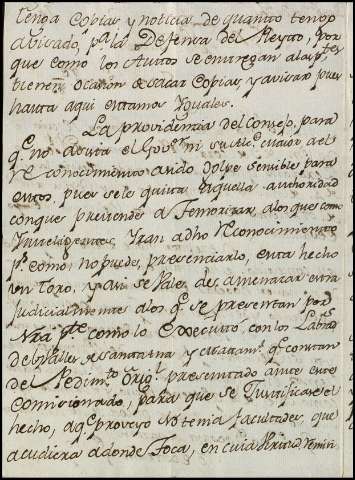 tenga Copias y noticia, de quanto tengo
abisado, pª la Defensa del Pleyto, por
que como los Autos se entregan alas ptes
tienen ocasion de sacar Copias, y avisar pues
hasta aqui estamos Yguales.
La providencia del consejo, para
q.e no asista el Gov.or ni su Alc.e maior al
reconocimiento asido golpe sensible para
estos, pues sele quita aquella authoridad
conque pretende a Temorizar, alos que como
Ynteligentes, Yran adho Reconocimiento
p.r como, no puede, presenciarlo, esta hecho
un Toro, y asi se Vale, de amenazar extra
Judicialmente alos q.e se presentan por
Nra p.te como lo Executó con los Labrad.s
de Valles, y que constan
del Pedim.to Orig.l presentado ante este
Comisionado, para que se Justificase el
hecho, a q.e proveyo No tenia facultades, que
acudiera adonde Toca, en cuia